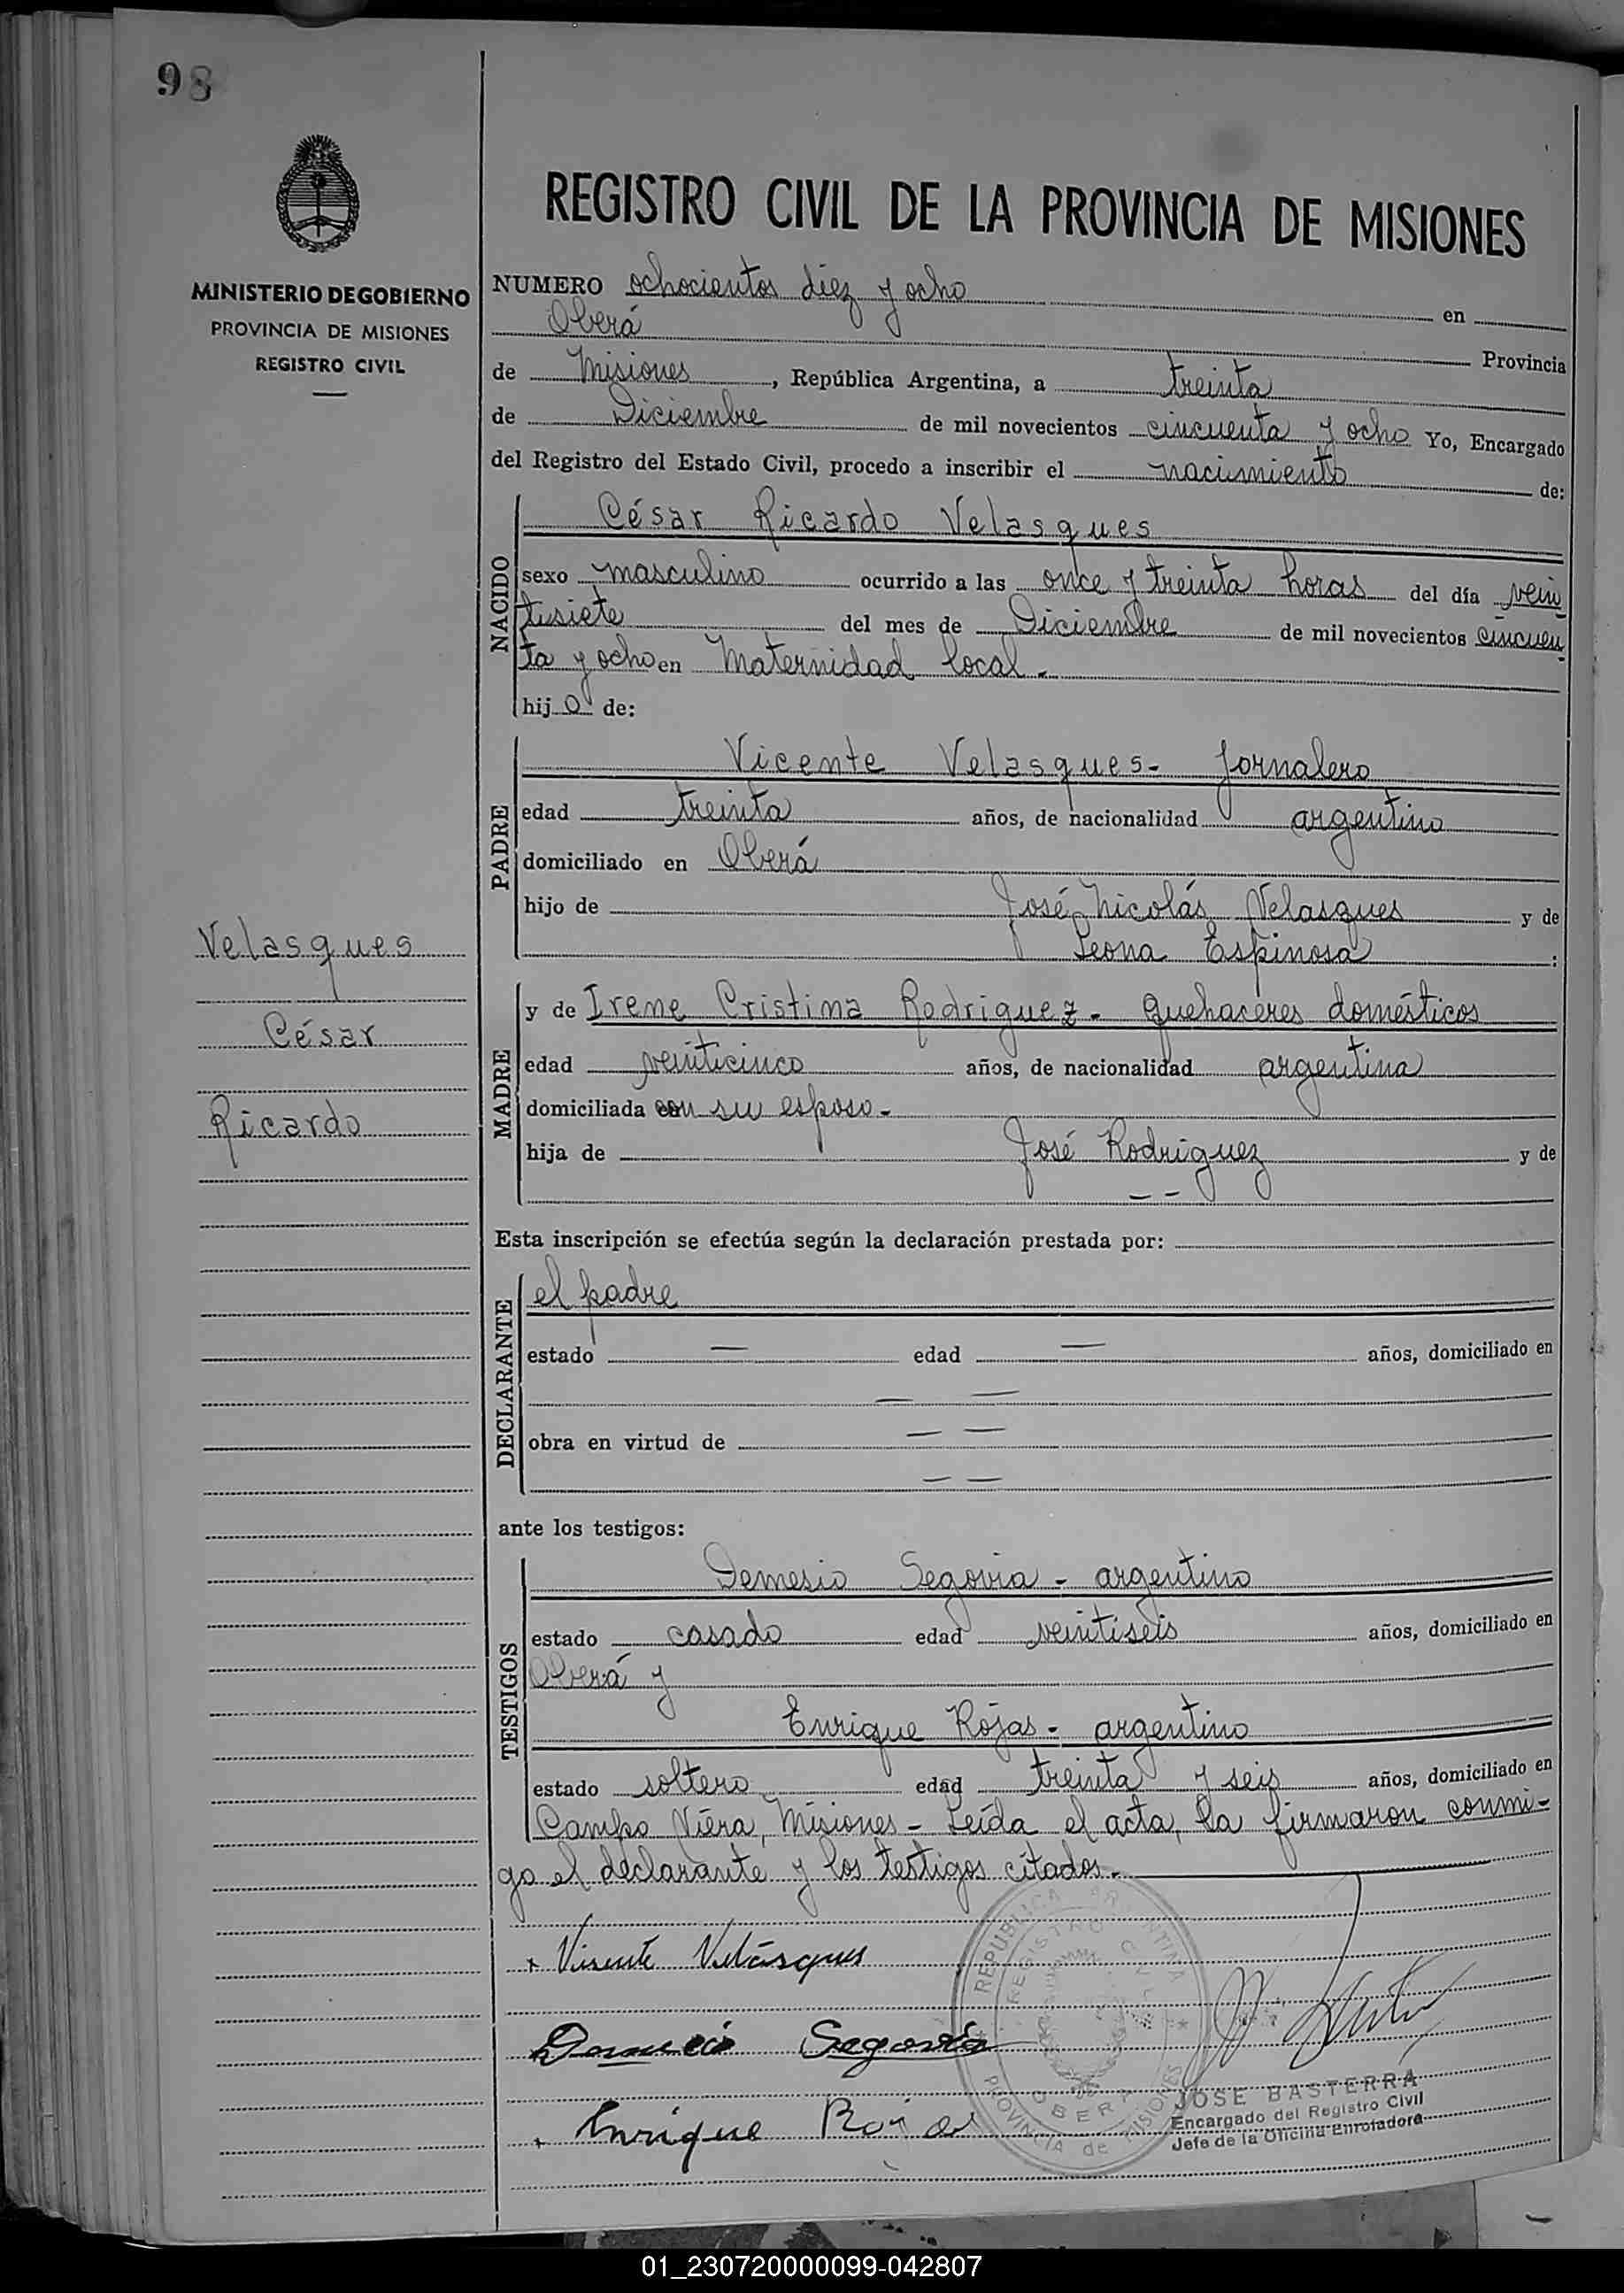 98
MINISTERIO DE GOBIERNO
PROVINCIA DE MISIONES
REGISTRO CIVIL
Velasques
César
Ricardo
REGISTRO CIVIL DE LA PROVINCIA DE MISIONES
NUMERO ochocientos diez y ocho en
Oberá Provincia
de Misiones, República Argentina, a treinta
de Diciembre de mil novecientos cincuenta y ocho Yo, Encargado
del Registro del Estado Civil, procedo a inscribir el nacimiento de:
NACIDO
César Ricardo Velasques
sexo masculino ocurrido a las once y treinta horas del día vein
tisiete del mes de Diciembre de mil novecientos cincuen
ta y ocho en Maternidad local.
hijo de:
PADRE
Vicente Velasques- Jornalero
edad treinta años, de nacionalidad argentino
domiciliado en Oberá
hijo de José Nicolás Velasques y de
Leona Espinosa :
MADRE
y de Irene Cristina Rodriguez- Quehaceres domésticos
edad veinticinco años, de nacionalidad argentina
domiciliada con su esposo-
hija de José Rodriguez y de
— —
Esta inscripción se efectúa según la declaración prestada por:
DECLARANTE
el padre
estado — edad — años, domiciliado en
— —
obra en virtud de — —
— —
ante los testigos:
TESTIGOS
Demesio Segovia - argentino
estado casado edad veintiseis años, domiciliado en
Oberá y
Enrique Rojas- argentino
estado soltero edad treinta y seis años, domiciliado en
Campo Viera, Misiones - Leída el acta, la firmaron conmi-
go el declarante y los testigos citados.
Visente Velásques
Segovia
Enrique Rojas
REPUBLICA ARGENTINA
REGISTRO CIVIL
OBERA
PROVINCIA de MISIONES
JOSE BASTERRA
Encargado del Registro Civil
Jefe de la Oficina Enroladora
01_230720000099-042807